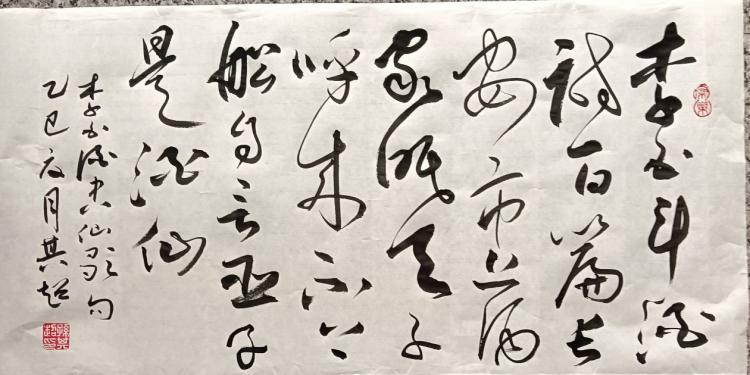 李白斗酒
诗百篇长
安市上酒
家眠天子
呼来不上
船自言臣子
是酒仙
李白酒中八仙歌句
乙巳夏月其超